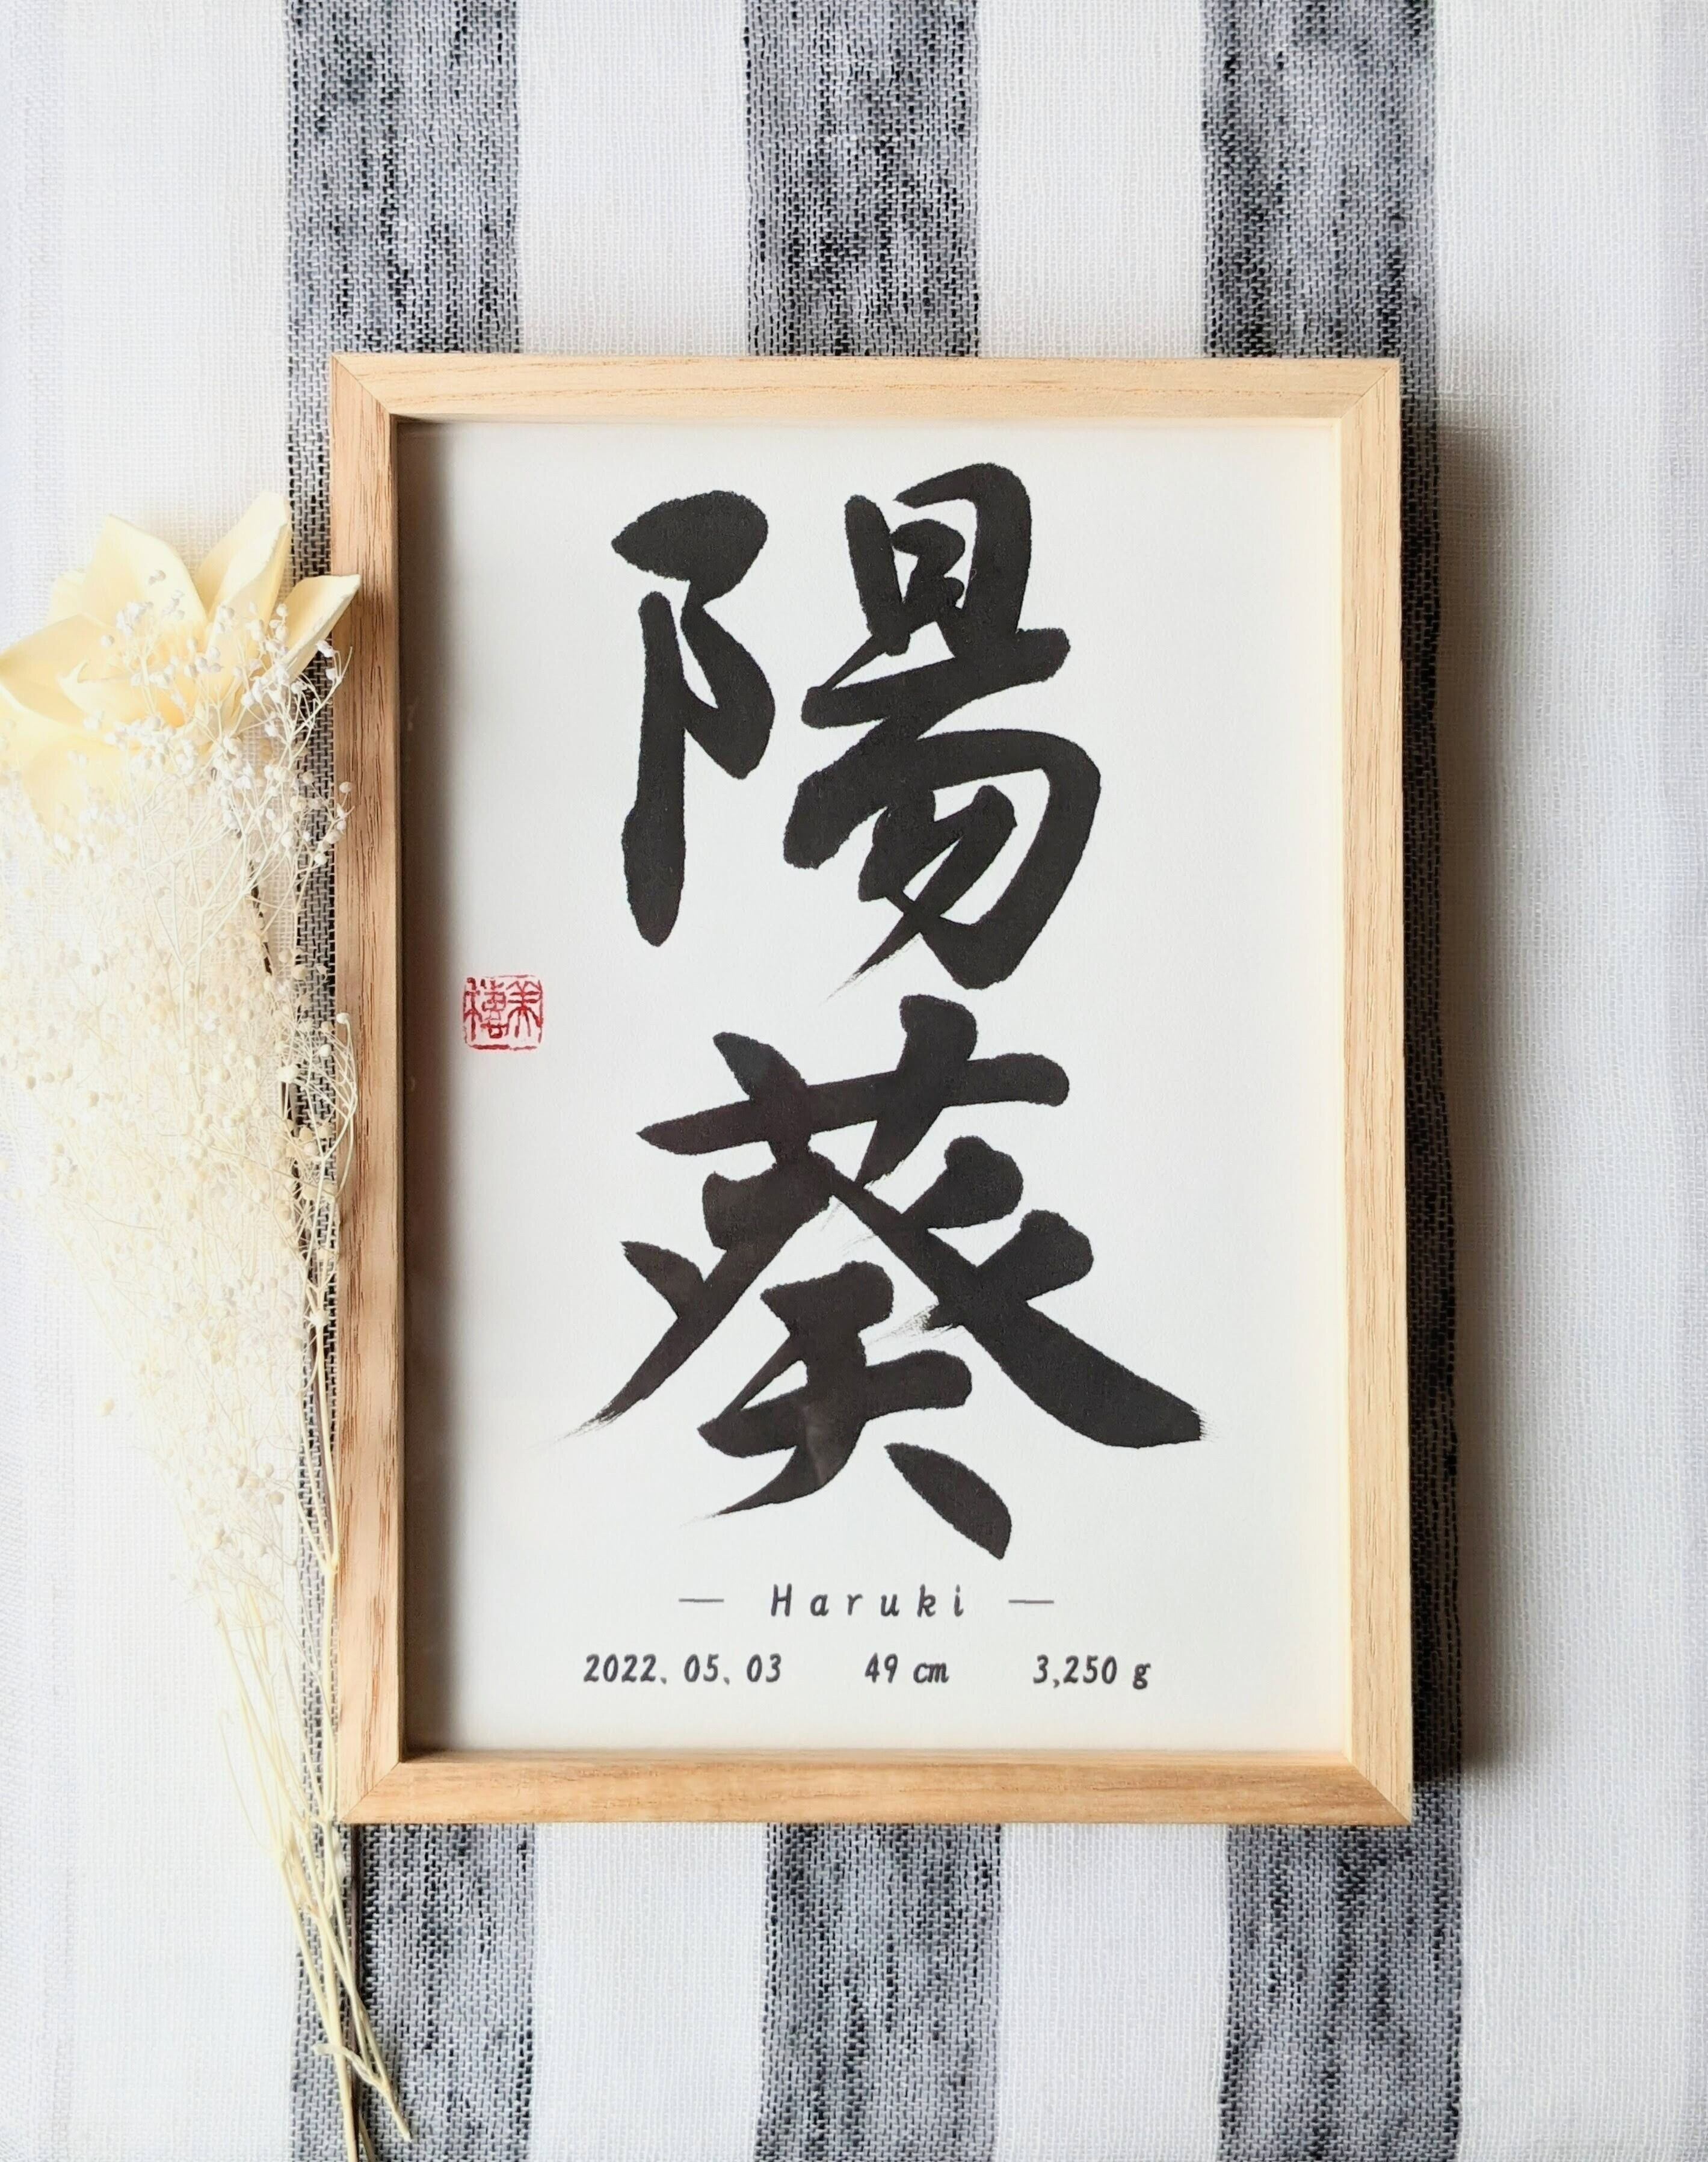 陽葵
— Haruki —
2022. 05. 03 49 cm 3,250 g